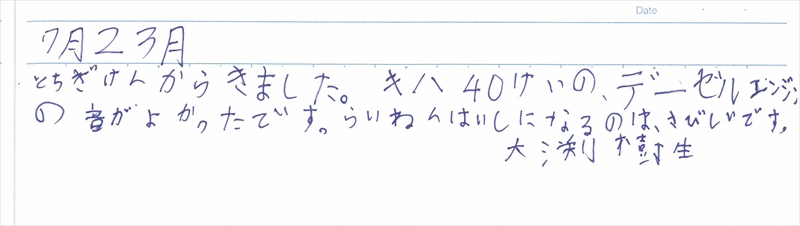 Date
7月23月
とちぎけんからきました。キハ40けいの、デーゼルエンジン
の音がよかったです。らいねんはいしになるのは、さびしいです。
大渕 樹生